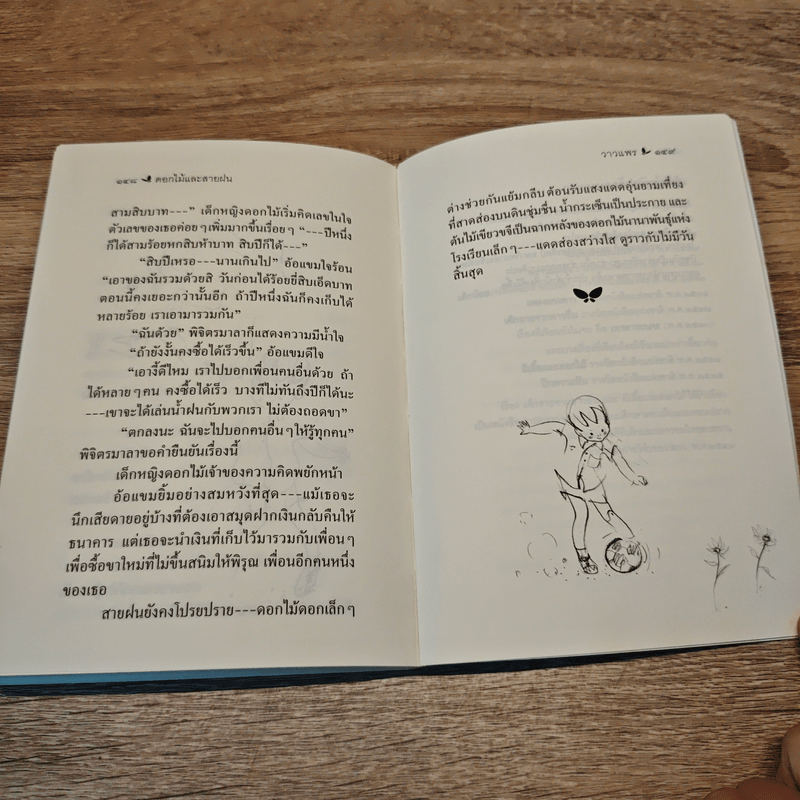 ๑๔๘ ดอกไม้และสายฝน
สามสิบบาท---” เด็กหญิงดอกไม้เริ่มคิดเลขในใจ
ตัวเลขของเธอค่อยๆเพิ่มมากขึ้นเรื่อยๆ “---ปีหนึ่ง
ก็ได้สามร้อยหกสิบห้าบาท สิบปีก็ได้---”
“สิบปีเหรอ---นานเกินไป” อ้อแขมใจร้อน
“เอาของฉันรวมด้วยสิ วันก่อนได้ร้อยยี่สิบเอ็ดบาท
ตอนนี้คงเยอะกว่านั้นอีก ถ้าปีหนึ่งฉันก็คงเก็บได้
หลายร้อย เราเอามารวมกัน”
“ฉันด้วย” พิจิตรมาลาก็แสดงความมีน้ำใจ
“ถ้ายังงั้นคงซื้อได้เร็วขึ้น” อ้อแขมดีใจ
“เอางี้ดีไหม เราไปบอกเพื่อนคนอื่นด้วย ถ้า
ได้หลายๆคน คงซื้อได้เร็ว บางทีไม่ทันถึงปีก็ได้นะ
---เขาจะได้เล่นน้ำฝนกับพวกเรา ไม่ต้องถอดขา”
“ตกลงนะ ฉันจะไปบอกคนอื่นๆให้รู้ทุกคน”
พิจิตรมาลาขอคำยืนยันเรื่องนี้
เด็กหญิงดอกไม้เจ้าของความคิดพยักหน้า
อ้อแขมยิ้มอย่างสมหวังที่สุด---แม้เธอจะ
นึกเสียดายอยู่บ้างที่ต้องเอาสมุดฝากเงินกลับคืนให้
ธนาคาร แต่เธอจะนำเงินที่เก็บไว้มารวมกับเพื่อนๆ
เพื่อซื้อขาใหม่ที่ไม่ขึ้นสนิมให้พิรุณ เพื่อนอีกคนหนึ่ง
ของเธอ
สายฝนยังคงโปรยปราย---ดอกไม้ดอกเล็กๆ
วาวแพร ๑๔๙
ต่างช่วยกันแย้มกลีบ ต้อนรับแสงแดดอุ่นยามเที่ยง
ที่สาดส่องบนดินชุ่มชื่น น้ำกระเซ็นเป็นประกาย และ
ต้นไม้เขียวขจีเป็นฉากหลังของดอกไม้นานาพันธุ์แห่ง
โรงเรียนเล็กๆ---แดดส่องสว่างใส ดูราวกับไม่มีวัน
สิ้นสุด